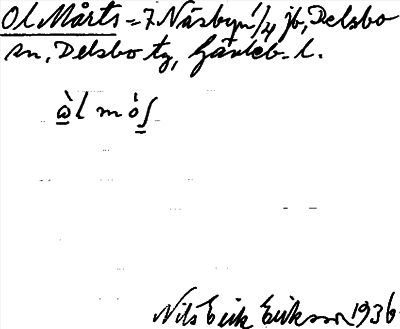 Ol Mårts = 7. Näsbyn 1/4 jb, Delsbo
sn, Delsbo tg, Gävleb. l.
ὼl mós
Nils Erik Eriksson 1936